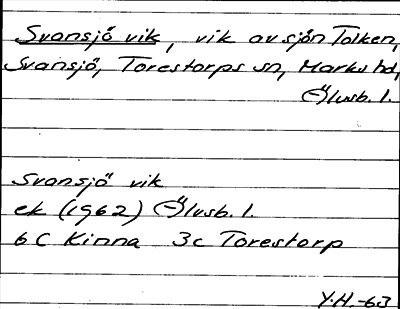 Svansjö vik, vik av sjön Tolken,
Svansjö, Torestorps sn, Marks hd,
Älvsb. l.
Svansjö vik
ek (1962) Älvsb. l.
6 C Kinna 3c Torestorp
Y.H.-63